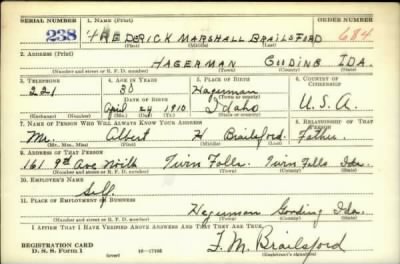 SERIAL NUMBER 1. NAME (Print) ORDER NUMBER
238 FREDERICK MARSHALL BRAILSFORD 684
(First) (Middle) (Last)
2. ADDRESS (Print)
HAGERMAN GOODING IDA.
(Number and street or R. F. D. number) (Town) (County) (State)
3. TELEPHONE 4. AGE IN YEARS 5. PLACE OF BIRTH 6. COUNTRY OF CITIZENSHIP
221 30 Hagerman
DATE OF BIRTH (Town or county)
April 24 1910 Idaho U.S.A.
(Exchange) (Number) (Mo.) (Day) (Yr.) (State or country)
7. NAME OF PERSON WHO WILL ALWAYS KNOW YOUR ADDRESS 8. RELATIONSHIP OF THAT PERSON
Mr. Albert H Brailsford Father
(Mr., Mrs., Miss) (First) (Middle) (Last)
9. ADDRESS OF THAT PERSON
161 9th Ave North Twin Falls Twin Falls Ida.
(Number and street or R. F. D. number) (Town) (County) (State)
10. EMPLOYER'S NAME
Self
11. PLACE OF EMPLOYMENT OR BUSINESS
Hagerman Gooding Ida.
(Number and street or R. F. D. number) (Town) (County) (State)
I AFFIRM THAT I HAVE VERIFIED ABOVE ANSWERS AND THAT THEY ARE TRUE.
REGISTRATION CARD
D. S. S. Form 1 (over) F. M. Brailsford
(Registrant's signature)